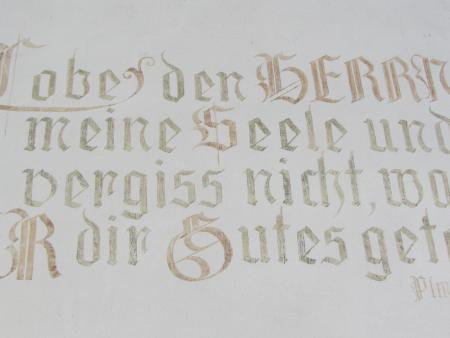 Lobe den HERRN
meine Seele und
vergiss nicht, wa
ER dir Gutes get
Plm